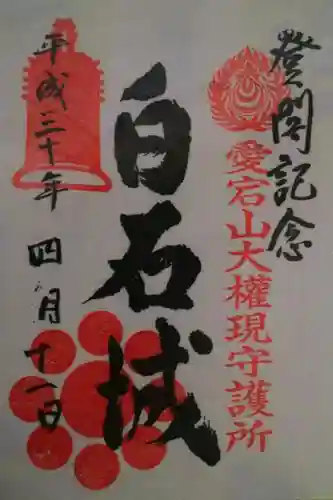 登閣記念
愛宕山大權現守護所
白石城
平成三十年四月十一日